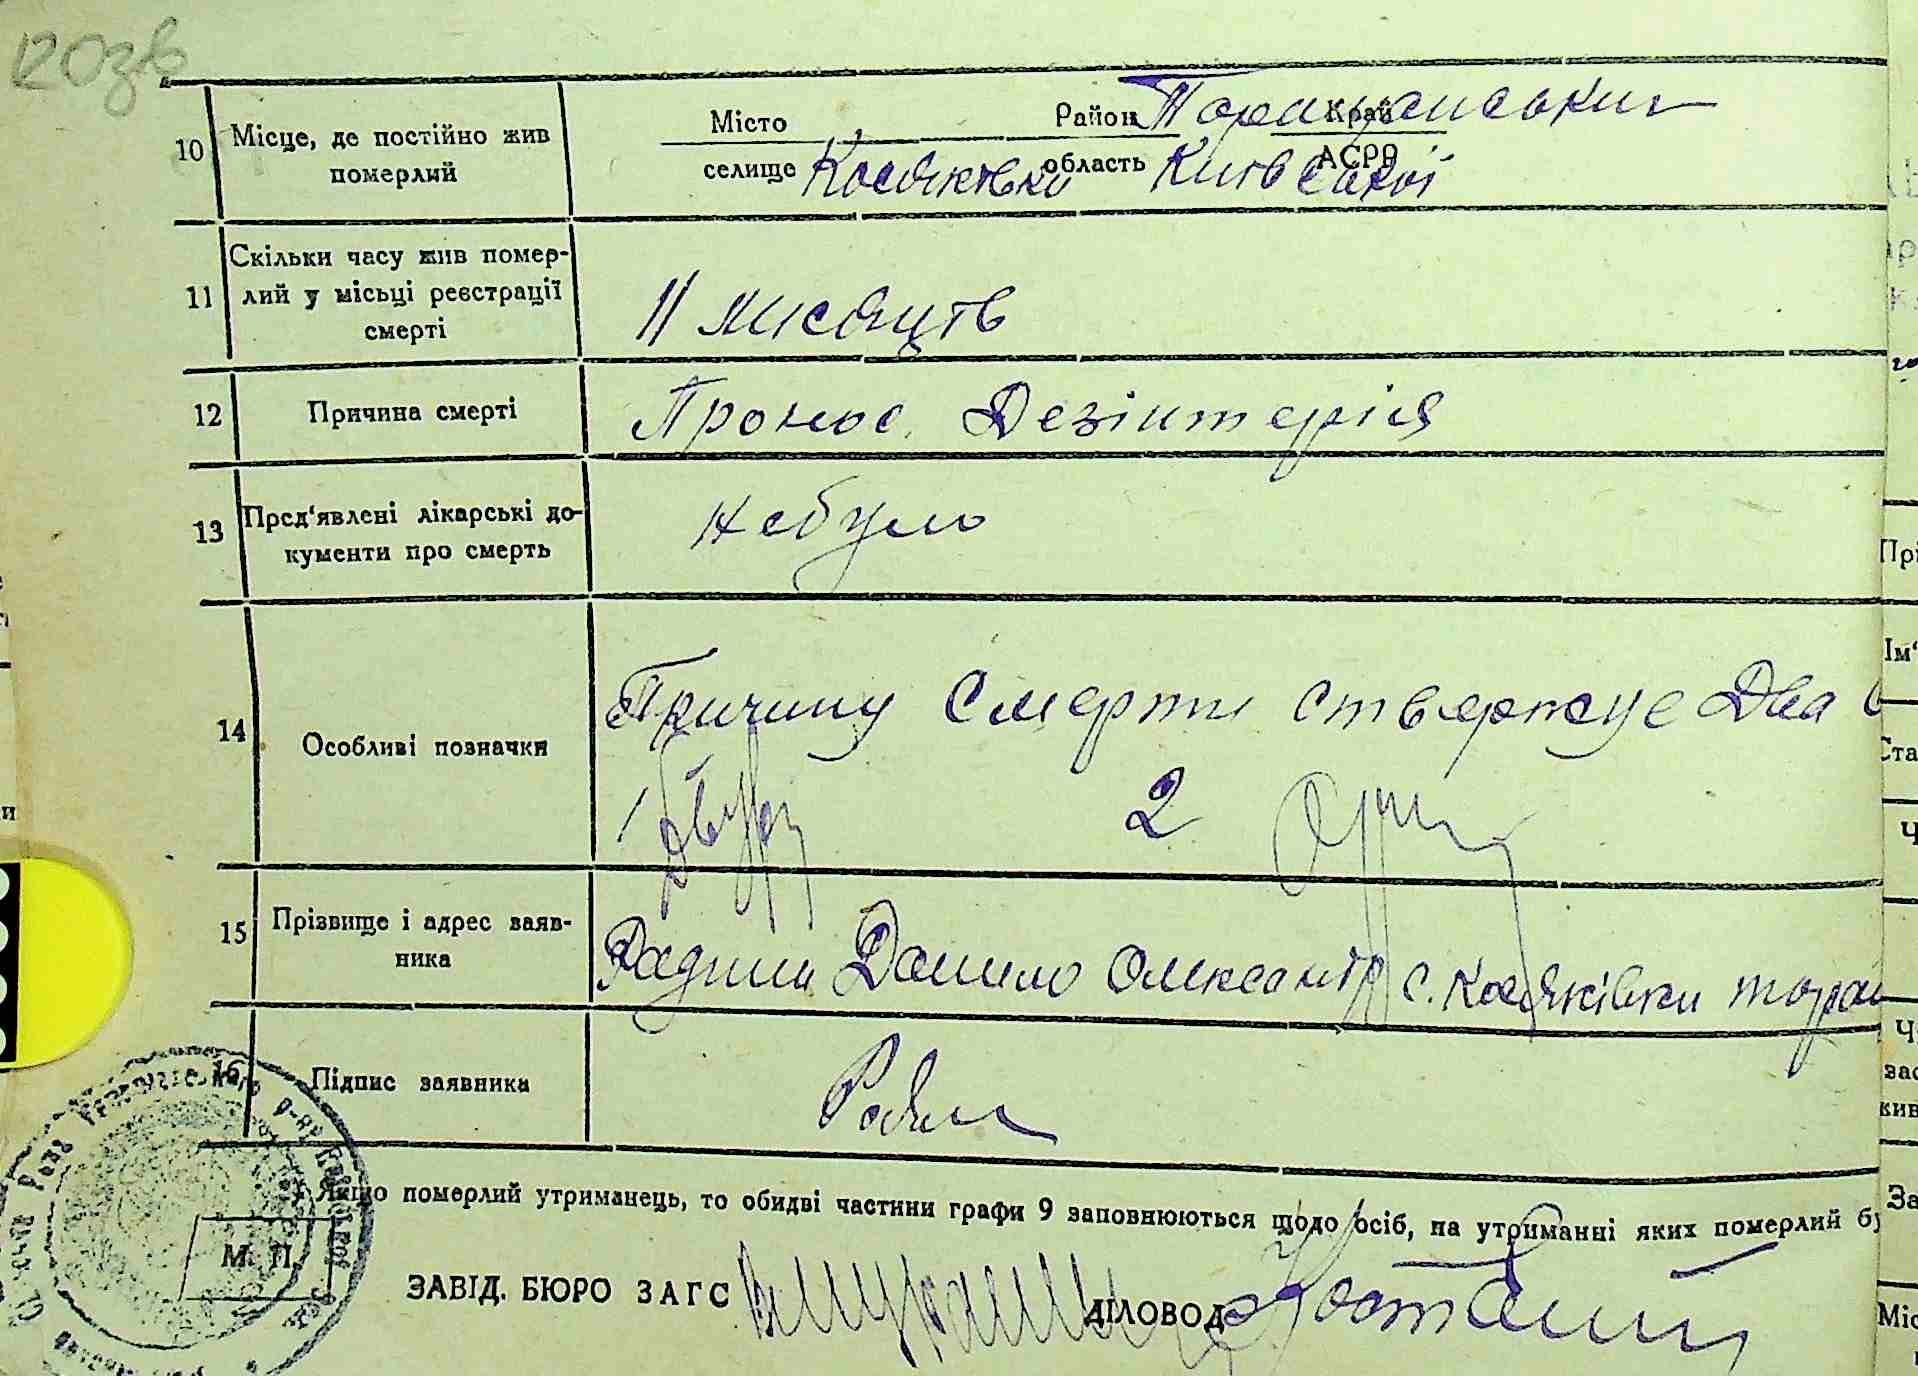 120зв
10 Місце, де постійно жив померлий
Місто Район Таращанський Край
селище Косяківка область Київської АСРР
11 Скільки часу жив помер-
лий у місьці реєстрації
смерті
11 мисяців
12 Причина смерті
Пронос. Дезінтерія
13 Пред'явлені лікарські до-
кументи про смерть
небуло
14 Особливі позначки
Причину смерти ствержує Два
1 2
15 Прізвище і адрес заяв-
ника
Данило Олександр с. Косяківки
16 Підпис заявника
Якщо померлий утриманець, то обидві частини графи 9 заповнюються щодо осіб, на утриманні яких померлий
М. П.
ЗАВІД. БЮРО ЗАГС ДІЛОВОД